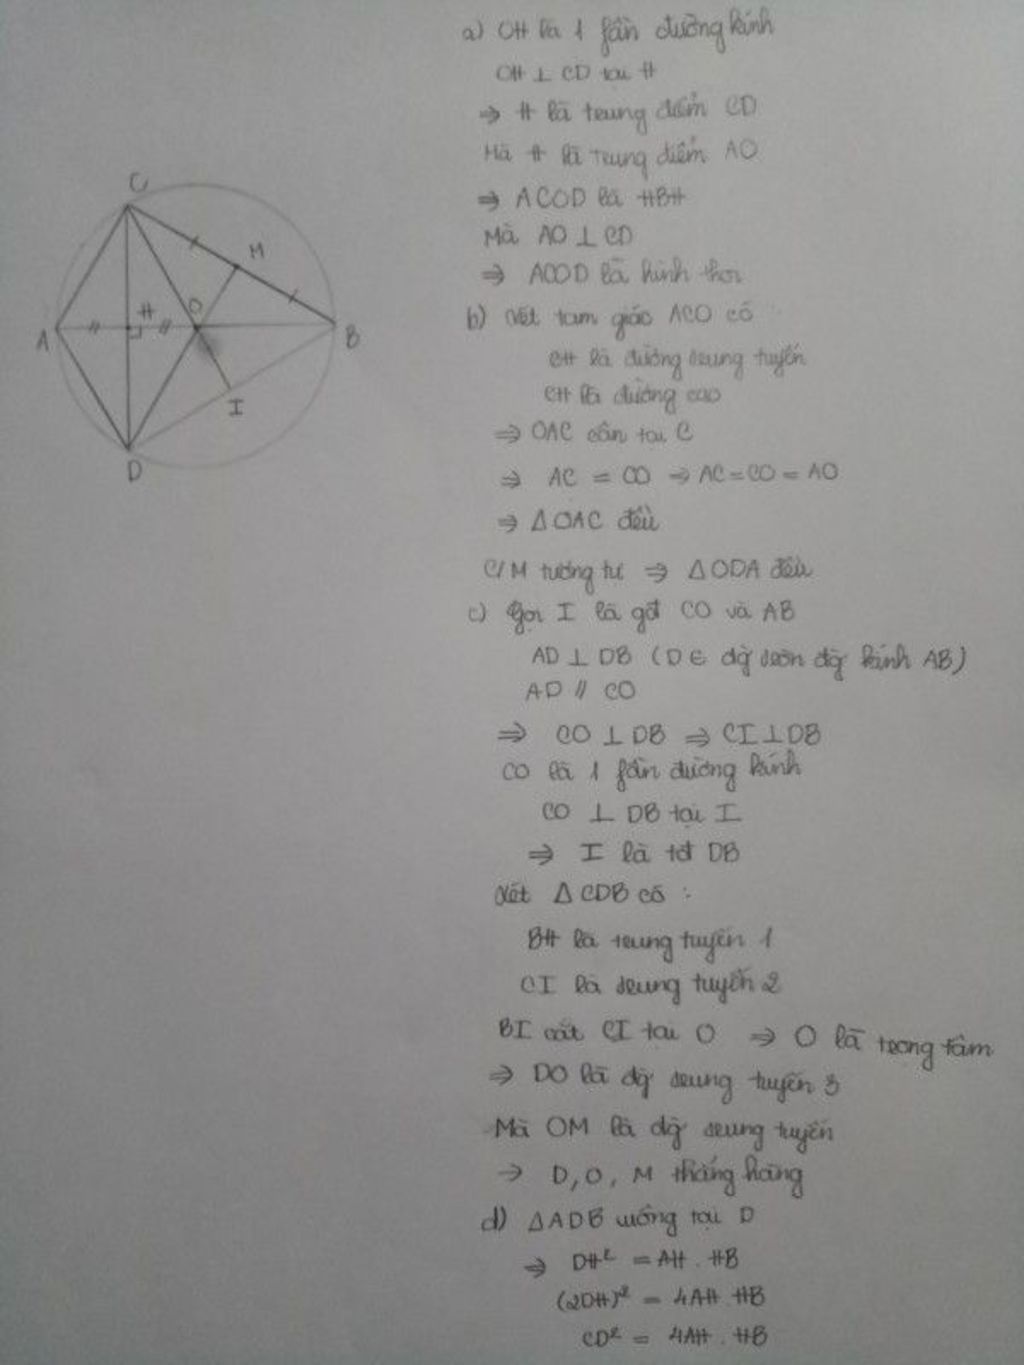 C
M
H
O
A
B
I
D
a) OH là 1 fần đường kính
OH ⊥ CD tại H
⇒ H là trung điểm CD
Mà H là trung điểm AO
⇒ ACOD là HBH
Mà AO ⊥ CD
⇒ ACOD là hình thoi
b) Xét tam giác ACO có
CH là đường trung tuyến
CH là đường cao
⇒ OAC cân tại C
⇒ AC = CO ⇒ AC = CO = AO
⇒ Δ OAC đều
C/M tương tự ⇒ Δ ODA đều
c) Gọi I là gđ CO và AB
AD ⊥ DB (D ∈ đg tròn đg kính AB)
AD // CO
⇒ CO ⊥ DB ⇒ CI ⊥ DB
CO là 1 fần đường kính
CO ⊥ DB tại I
⇒ I là tđ DB
Xét Δ CDB có :
BH là trung tuyến 1
CI là trung tuyến 2
BI cắt CI tại O ⇒ O là trọng tâm
⇒ DO là đg trung tuyến 3
Mà OM là đg trung tuyến
⇒ D, O, M thẳng hàng
d) Δ ADB vuông tại D
⇒ DH² = AH . HB
(2DH)² = 4AH . HB
CD² = 4AH . HB